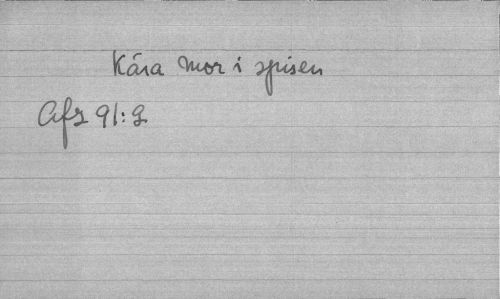 Kära mor i spisen
Afz 91:9